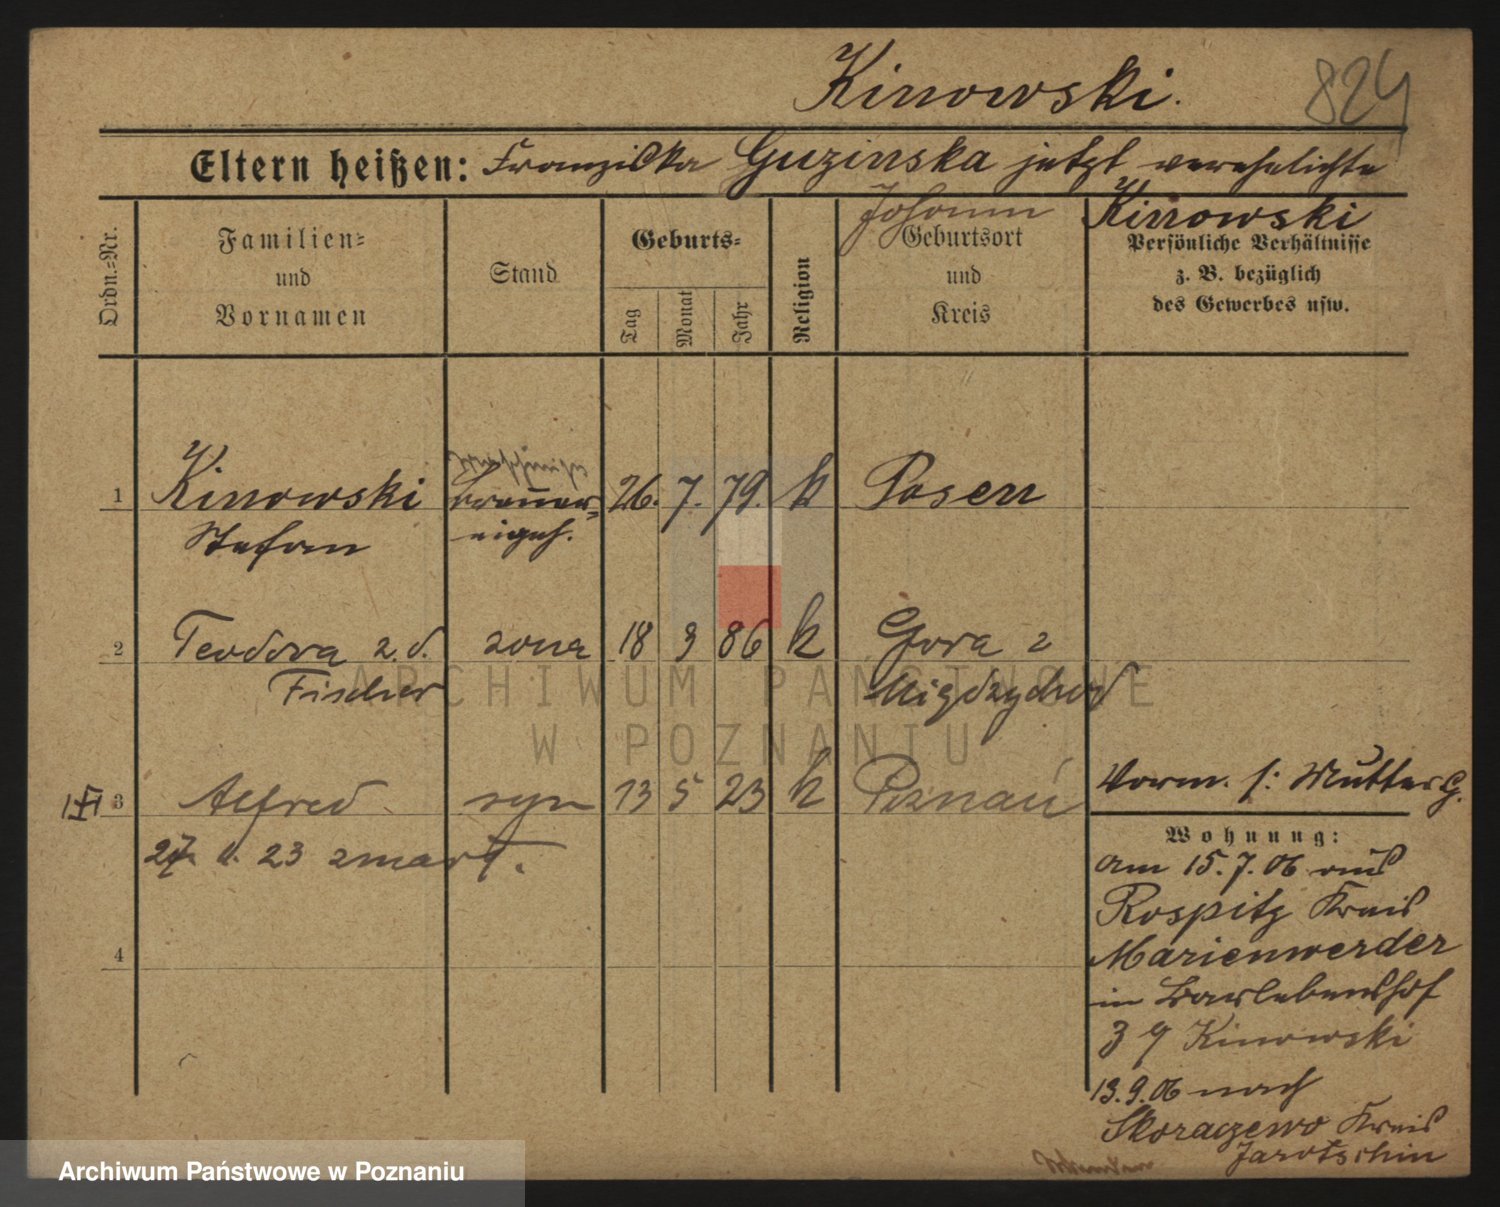 Kinowski.
824
Eltern heißen: Franziska Guzinska jetzt verehelichte
Johann Kinowski
Ordn.=Nr.
Familien=
und
Vornamen
Stand
Geburts=
Tag
Monat
Jahr
Religion
Geburtsort
und
Kreis
Persönliche Verhältnisse
z. B. bezüglich
des Gewerbes usw.
1 Kinowski Brauer= 26. 7. 79. k Posen
Stefan eigeh.
2 Teodora z. d. zona 18 3 86 k Gora z
Fischer Migdzychod
3 Alfred syn 13 5 23 k Poznań
Vorm. f: Mutter
23 zmarł.
4
Wohnung:
am 15.7.06 aus
Rospitz Kreis
Marienwerder
in Barlebenshof
3 9 Kinowski
13.9.06 nach
Skoraczewo Kreis
Jarotschin
ARCHIWUM PAŃSTWOWE
W POZNANIU
Archiwum Państwowe w Poznaniu